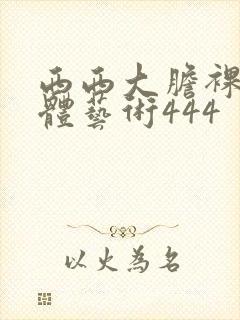 西西大膽裸
體藝術444
以火為名